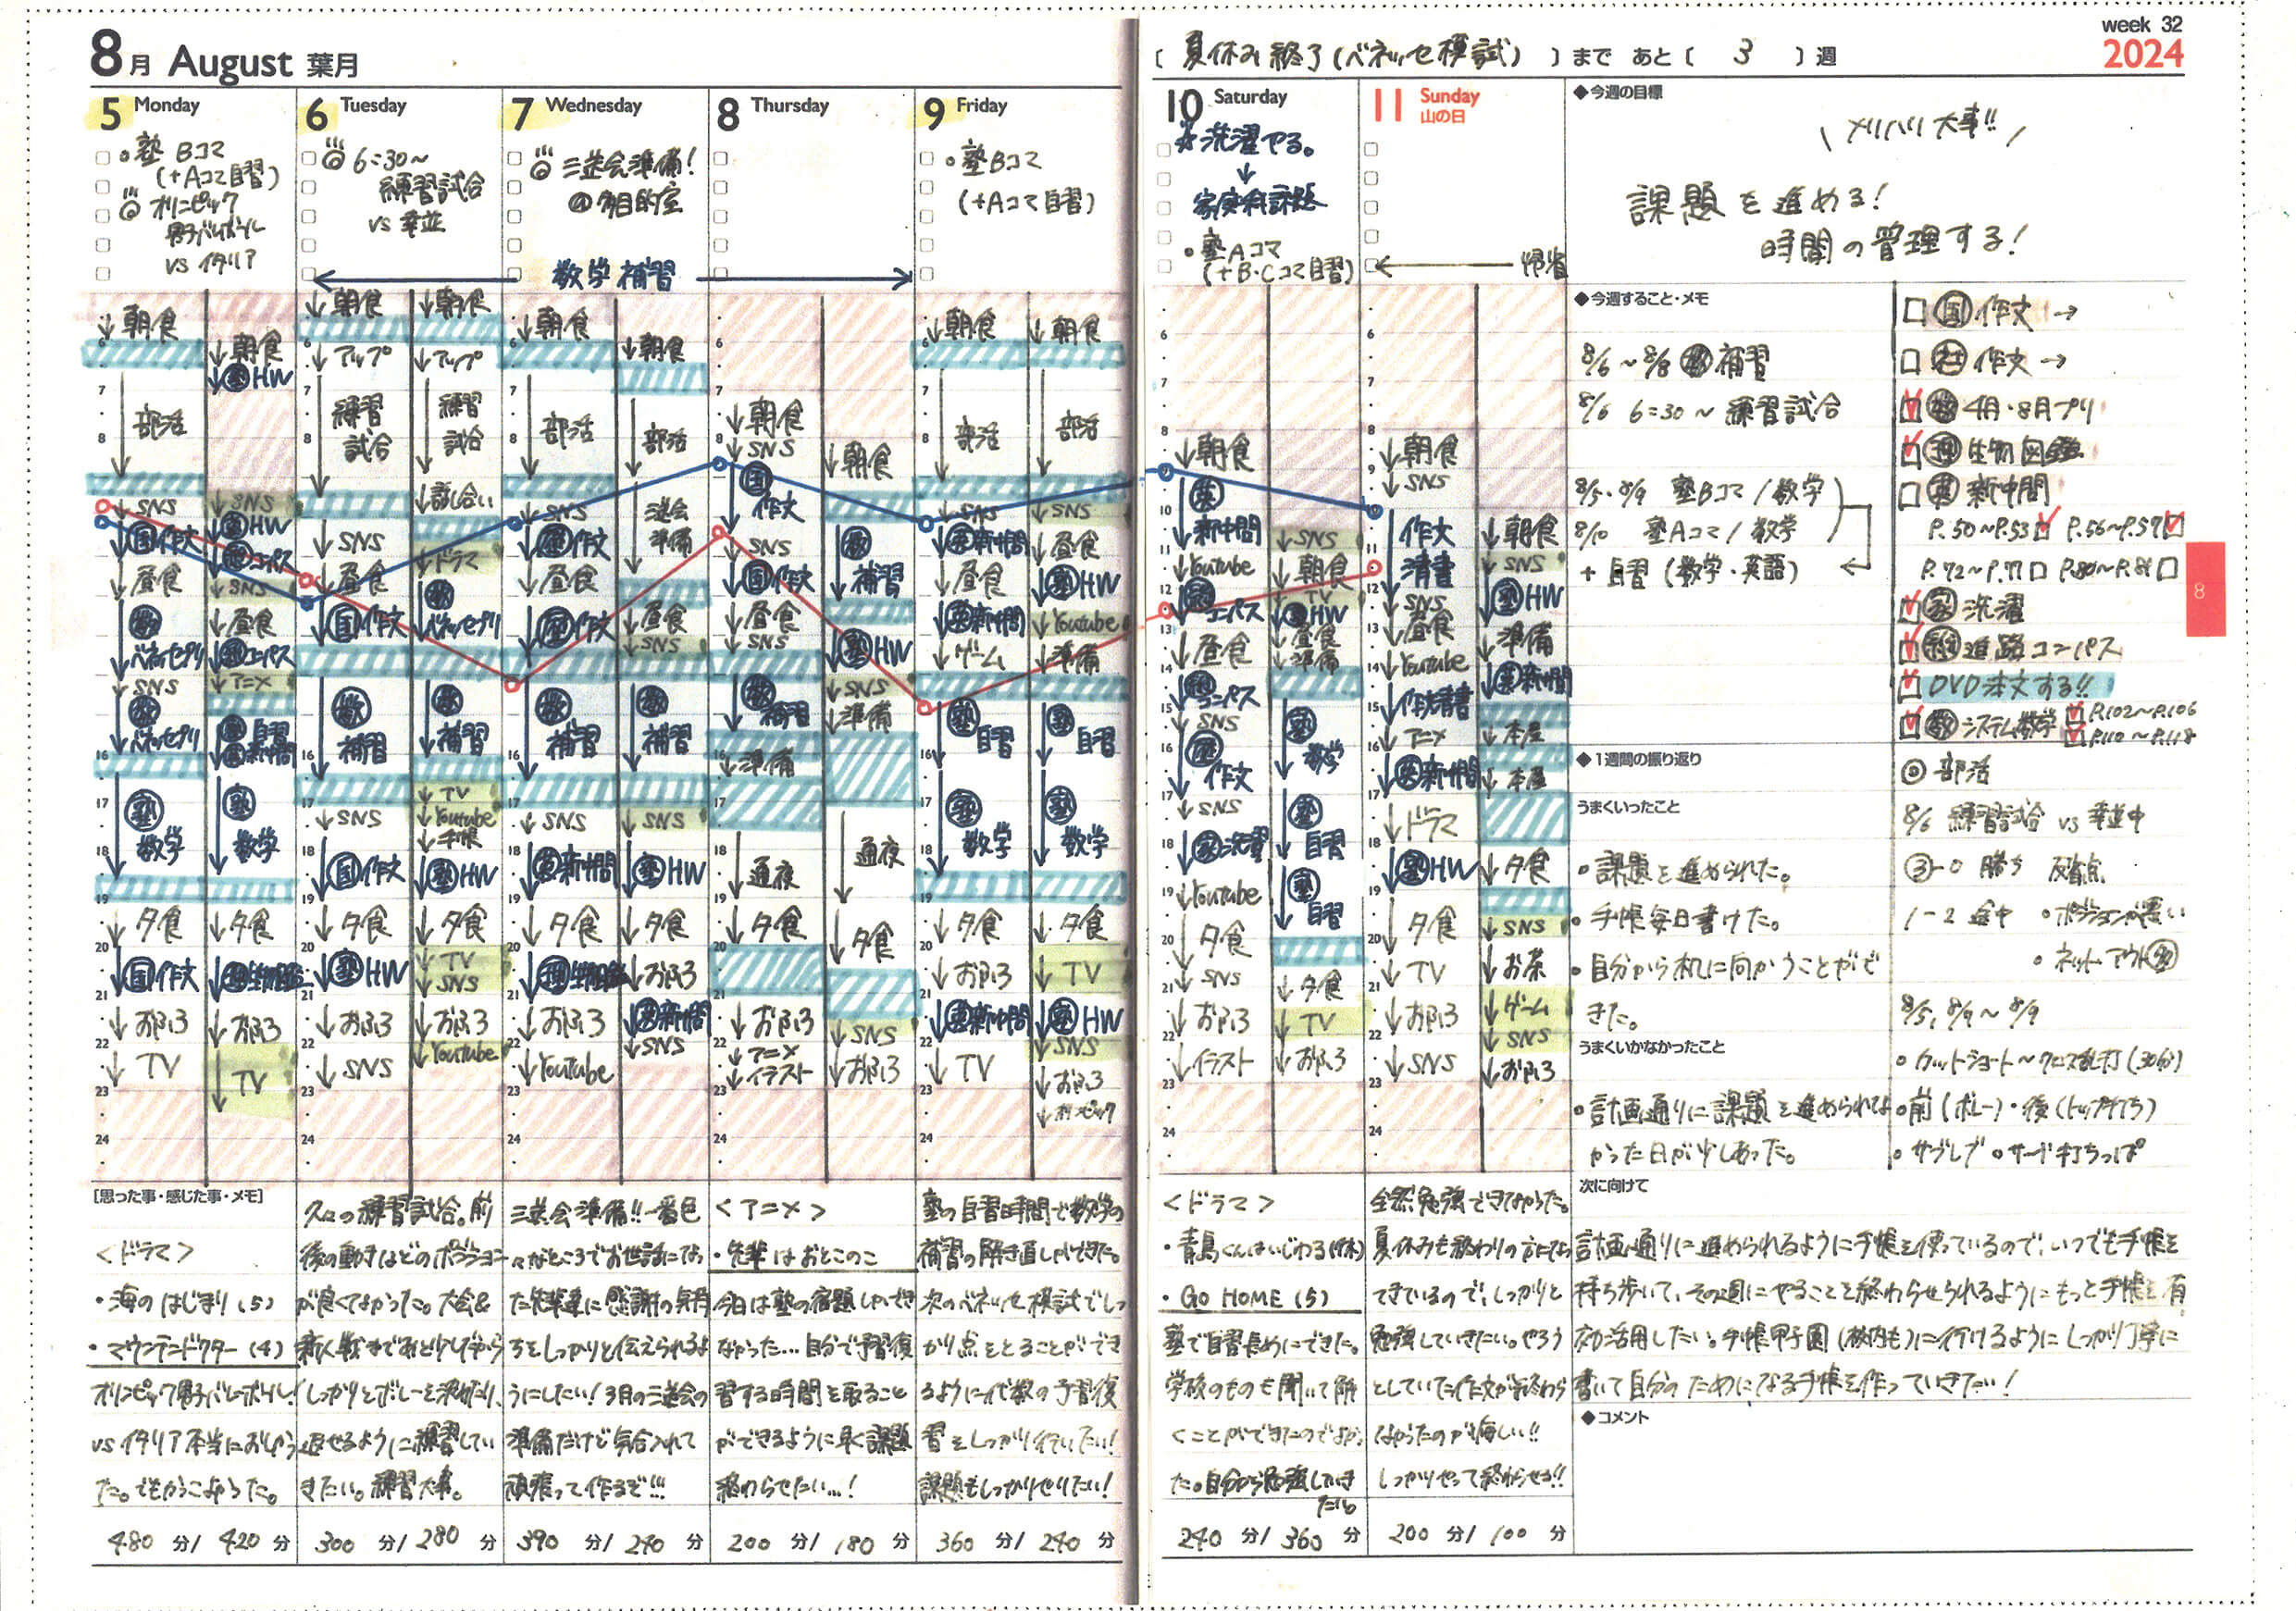 8月 August 葉月
[ 夏休み終了(ベネッセ模試) ]まで あと[ 3 ]週
week 32
2024
5 Monday
。塾 Bコマ
(+Aコマ自習)
オリンピック
男子バレーボール
vs イタリア
6 Tuesday
6:30~
練習試合
vs 幸並
7 Wednesday
三送会準備!
@多目的室
8 Thursday
9 Friday
。塾Bコマ
(+Aコマ自習)
数学補習
10 Saturday
☆洗濯やる。
↓
家庭科課題
・塾Aコマ
(+B・Cコマ自習)
11 Sunday
山の日
← 帰省
↓朝食
部活
↓SNS
国作文
↓昼食
数
ベネッセプリ
↓SNS
数
ベネッセプリ
塾
数学
↓夕食
国作文
↓おふろ
↓TV
↓朝食
↓塾HW
↓SNS
↓SNS
↓昼食
↓アニメ
自習
新中問
塾
数学
↓夕食
↓おふろ
TV
↓朝食
↓アップ
練習
試合
↓SNS
↓昼食
↓国作文
数
補習
↓SNS
国作文
↓夕食
↓塾HW
↓おふろ
↓SNS
↓朝食
↓アップ
練習
試合
↓話し合い
↓ドラマ
数
ベネッセプリ
数
補習
↓TV
↓Youtube
↓手帳
↓塾HW
↓夕食
↓TV
↓SNS
↓おふろ
↓Youtube
↓朝食
部活
↓SNS
作文
↓昼食
作文
数
補習
↓SNS
英新中問
↓夕食
↓おふろ
↓Youtube
↓朝食
部活
送会
準備
↓昼食
↓SNS
数
補習
↓SNS
↓塾HW
↓夕食
↓おふろ
英新中問
↓SNS
↓朝食
↓SNS
国
作文
↓SNS
国作文
↓昼食
↓SNS
数
補習
↓準備
通夜
↓夕食
↓おふろ
↓アニメ
↓イラスト
↓朝食
数
補習
塾HW
↓SNS
↓準備
通夜
↓夕食
↓SNS
↓おふろ
↓朝食
部活
↓SNS
英新中問
↓昼食
英新中問
↓ゲーム
塾
自習
塾
数学
↓夕食
↓おふろ
英新中問
↓TV
↓朝食
部活
↓SNS
↓昼食
↓塾HW
↓Youtube
↓準備
塾
自習
塾
数学
↓夕食
↓TV
↓塾HW
↓SNS
↓おふろ
↓オリンピック
↓朝食
英
新中問
↓Youtube
コンパス
↓昼食
コンパス
↓SNS
作文
↓SNS
家洗濯
↓Youtube
↓夕食
↓SNS
↓おふろ
↓イラスト
↓SNS
↓朝食
↓TV
塾HW
↓昼食
↓準備
塾
数学
塾
自習
塾
自習
↓夕食
↓TV
↓おふろ
↓朝食
↓SNS
作文
清書
↓SNS
↓昼食
↓Youtube
↓作文清書
↓アニメ
英新中問
↓ドラマ
↓塾HW
↓夕食
↓TV
↓おふろ
↓SNS
↓朝食
↓SNS
↓塾HW
↓準備
英新中問
↓本屋
↓本屋
↓夕食
↓SNS
↓お茶
↓ゲーム
↓SNS
↓おふろ
◆今週の目標
\ メリハリ大事!! /
課題を進める!
時間の管理する!
◆今週すること・メモ
8/6~8/8 数補習
8/6 6:30~ 練習試合
8/5・8/9 塾Bコマ/数学
8/10 塾Aコマ/数学
+自習(数学・英語)
□国作文→
□社作文→
□数4月・8月プリ
□理生物図鑑
□英新中問
P.50~P.53□ P.56~P.57□
P.72~P.77□ P.80~P.81□
□家洗濯
□総進路コンパス
□DVD注文する!!
□数システム数学 □P.102~P.106
□P.110~P.118
◆1週間の振り返り
うまくいったこと
・課題を進められた。
・手帳毎日書けた。
・自分から机に向かうことがで
きた。
うまくいかなかったこと
・計画通りに課題を進められな
かった日が少しあった。
◎部活
8/6 練習試合 vs 幸並中
③-0 勝ち 反省点
1-2 途中 ・ポジションが悪い
・ネット アウト多
8/5, 8/9~8/9
・カットショート~クロス乱打(30分)
・前(ボレー)・後(トップ打ち)
・サブレブ ・サーブ打ちっぱ
次に向けて
計画通りに進められるように手帳を使っているので、いつでも手帳を
持ち歩いて、その週にやることを終わらせられるようにもっと手帳を有
効活用したい。手帳甲子園(校内も)に行けるようにしっかり丁寧に
書いて自分のためになる手帳を作っていきたい!
◆コメント
[思った事・感じた事・メモ]
<ドラマ>
・海のはじまり(5)
・マウンテンドクター(4)
オリンピック男子バレーボール!
vsイタリア本当におしかっ
た。でもかっこよかった。
久々の練習試合。前
後の動きほどのポジション
が良くなかった。大会&
新人戦まであと少しだから
しっかりとボレーを決めたり、
返せるように練習してい
きたい。練習大事。
三送会準備!!一番色
々なところでお世話になっ
た先輩達に感謝の気持
ちをしっかりと伝えられるよ
うにしたい!3月の三送会の
準備だけど気合入れて
頑張って作るぞ!!!
<アニメ>
・先輩はおとこのこ
今日は塾の宿題しかでき
なかった…自分で予習復
習する時間を取ること
ができるように早く課題
終わらせたい…!
塾の自習時間で数学の
補習の解き直しができた。
次のベネッセ模試でしっ
かり点をとることができ
るように代数の予習復
習をしっかり行いたい!
課題もしっかりやりたい!
<ドラマ>
・青島くんはいじわる(休)
・GO HOME(5)
塾で自習長めにできた。
学校のものも聞いて解
くことができたのでよかっ
た。自分から勉強していき
たい。
全然勉強できなかった。
夏休みも終わりの方になっ
てきているので、しっかりと
勉強していきたい。やろう
としていた作文が終わら
なかったのが悔しい!!
しっかりやって終わらせる!!
480 分/ 420 分
300 分/ 280 分
390 分/ 240 分
200 分/ 180 分
360 分/ 240 分
240 分/ 360 分
200 分/ 100 分
8